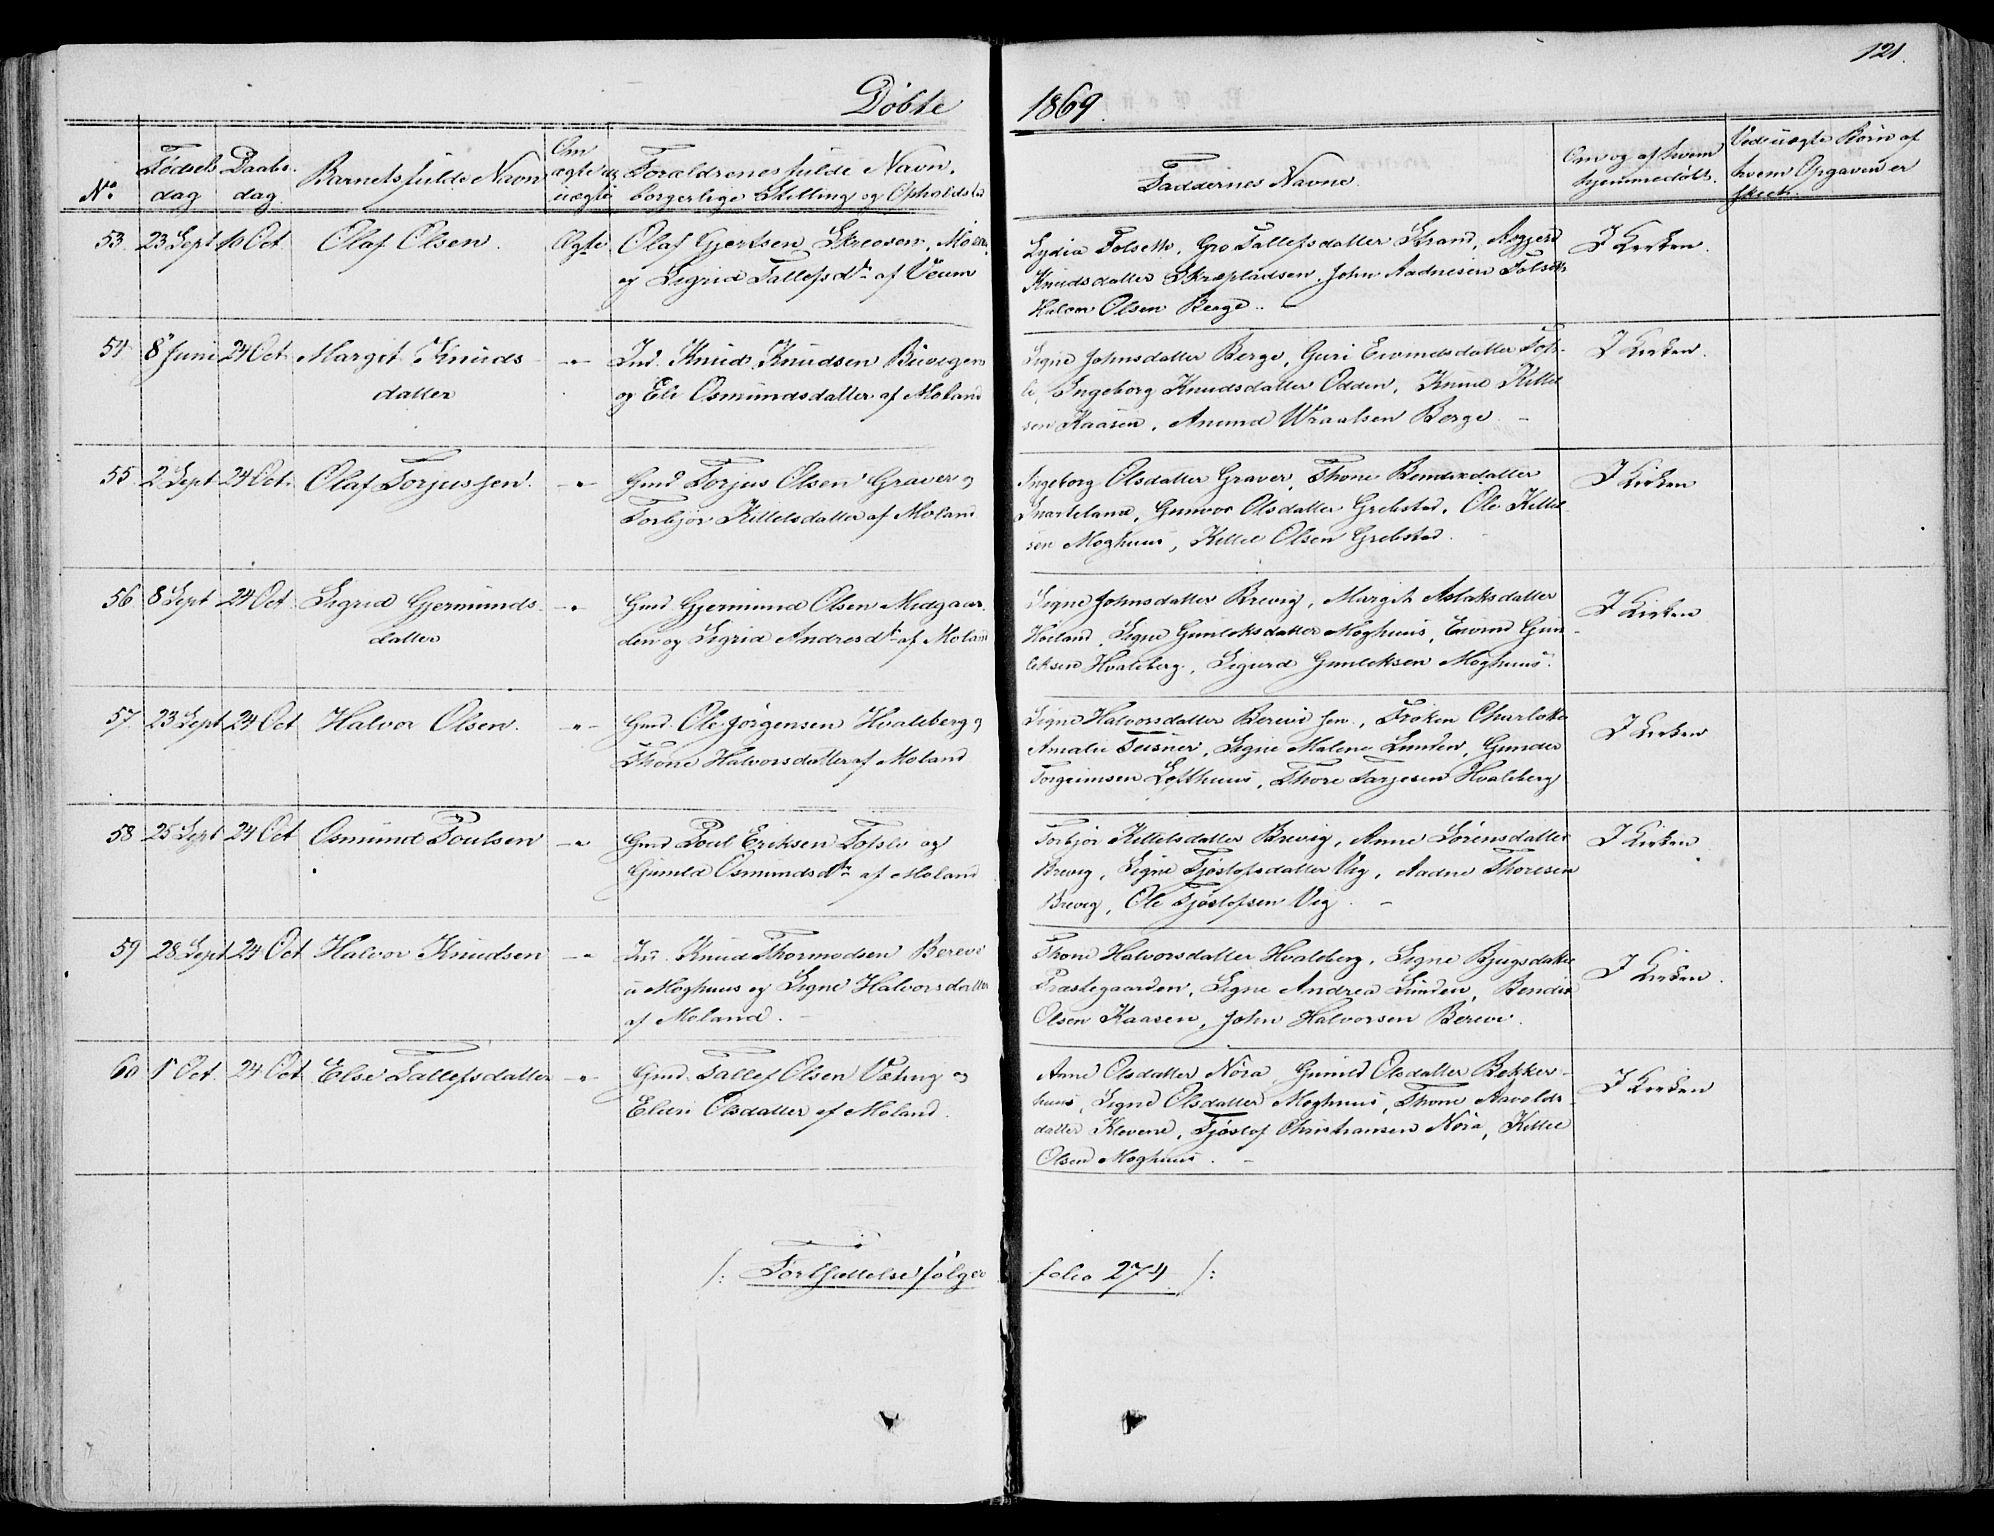 121.
Døbte 1869.
No.
Fødsels dag
Daabs dag.
Barnets fulde Navn
Om ægte el. uægte
Forældrenes fulde Navn, borgerlige Stilling og Opholdsted
Faddernes Navne.
Om og af hvem hjemmedøbt.
Ved uægte Børn af hvem Opgaven er skeet.
53. 23 Sept 10 Oct Olaf Olsen. Ægte
Olaf Gjertsen
og Sigrid Tallefsdtr af Veum
Lydia Folseth, Gro Tallefsdatter Strand, Asgjerd
Knudsdatter, John Aadnesen
Halvor Olsen Berge. -
I Kirken.
54 8 Juni 24 Oct Margit Knuds
datter -"-
Ind. Knud Knudsen
og Eli Osmundsdatter af Moland
Signe Johnsdatter Berge, Guri Eivindsdatter
Ingeborg Knudsdatter Odden, Knud Kittel
sen Kaasen, Anund Wraalsen Berge. -
I Kirken.
55. 2 Sept 24 Oct. Olaf Torjussen. -"-
Gmd Torjus Olsen Graver og
Torbjør Kittelsdatter af Moland
Ingeborg Olsdatter Graver, Thone Bendixdatter
Snarteland, Gunvor Olsdatter Grebstad, Ole Kittel
sen Moghuus, Kittel Olsen Grebstad.
I Kirken
56 8 Sept 24 Oct Sigrid Gjermunds
datter -"-
Gmd. Gjermund Olsen Midgaar
den og Sigrid Andresdtr af Moland
Signe Johnsdatter Brevig, Margit Aslaksdatter
Høiland, Signe Gunleksdatter Moghuus, Eivind Gun
leksen Hvaleberg, Sigurd Gunleksen Moghuus.
I Kirken
57. 23 Sept 24 Oct Halvor Olsen. -"-
Gmd. Ole Jørgensen Hvaleberg og
Thone Halvorsdatter af Moland
Signe Halvorsdatter Berevi sen., Frøken Charlotte
Amalie Teisner, Signe Malene Lunden, Gunder
Torgrimsen Lofthuus, Thore Tarjesen Hvaleberg
I Kirken
58 25 Sept 24 Oct Osmund Poulsen -"-
Gmd Poul Eriksen og
Gunild Osmundsdtr af Moland
Torbjør Kittelsdatter Brevig, Anne Sørensdatter
Brevig, Signe Tjøstofsdatter Vig, Aadne Thoresen
Brevig, Ole Tjøstofsen Vig. -
I Kirken
59 28 Sept 24 Oct Halvor Knudsen -"-
Ins. Knud Thormodsen Berevi
u. Moghuus og Signe Halvorsdatter
af Moland. -
Thone Halvorsdatter Hvaleberg, Signe Bjugsdatter
Præstegaarden, Signe Andrea Lunden, Bendix
Olsen Kaasen, John Halvorsen Berevi.
I Kirken.
60 1 Oct. 24 Oct Else Tallefsdatter -"-
Gmd. Tallef Olsen Væting og
Eliin Olsdatter af Moland.
Anne Olsdatter Nøra, Gunild Olsdatter Bekker-
huus, Signe Olsdatter Moghuus, Thone Aavolds-
datter Klevene, Tjøstof Christiansen Nøra, Kittel
Olsen Moghuus. -
I Kirken
/: Fortsættelse følger folio 274. /: